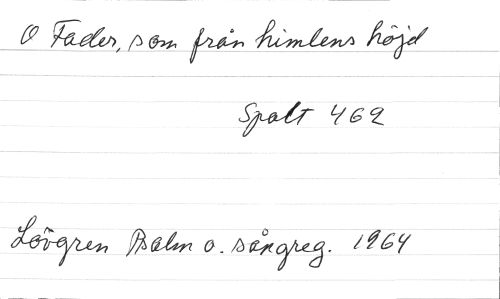 O Fader, som från himlens höjd
Spalt 462
Lövgren Psalm o. sångreg. 1964